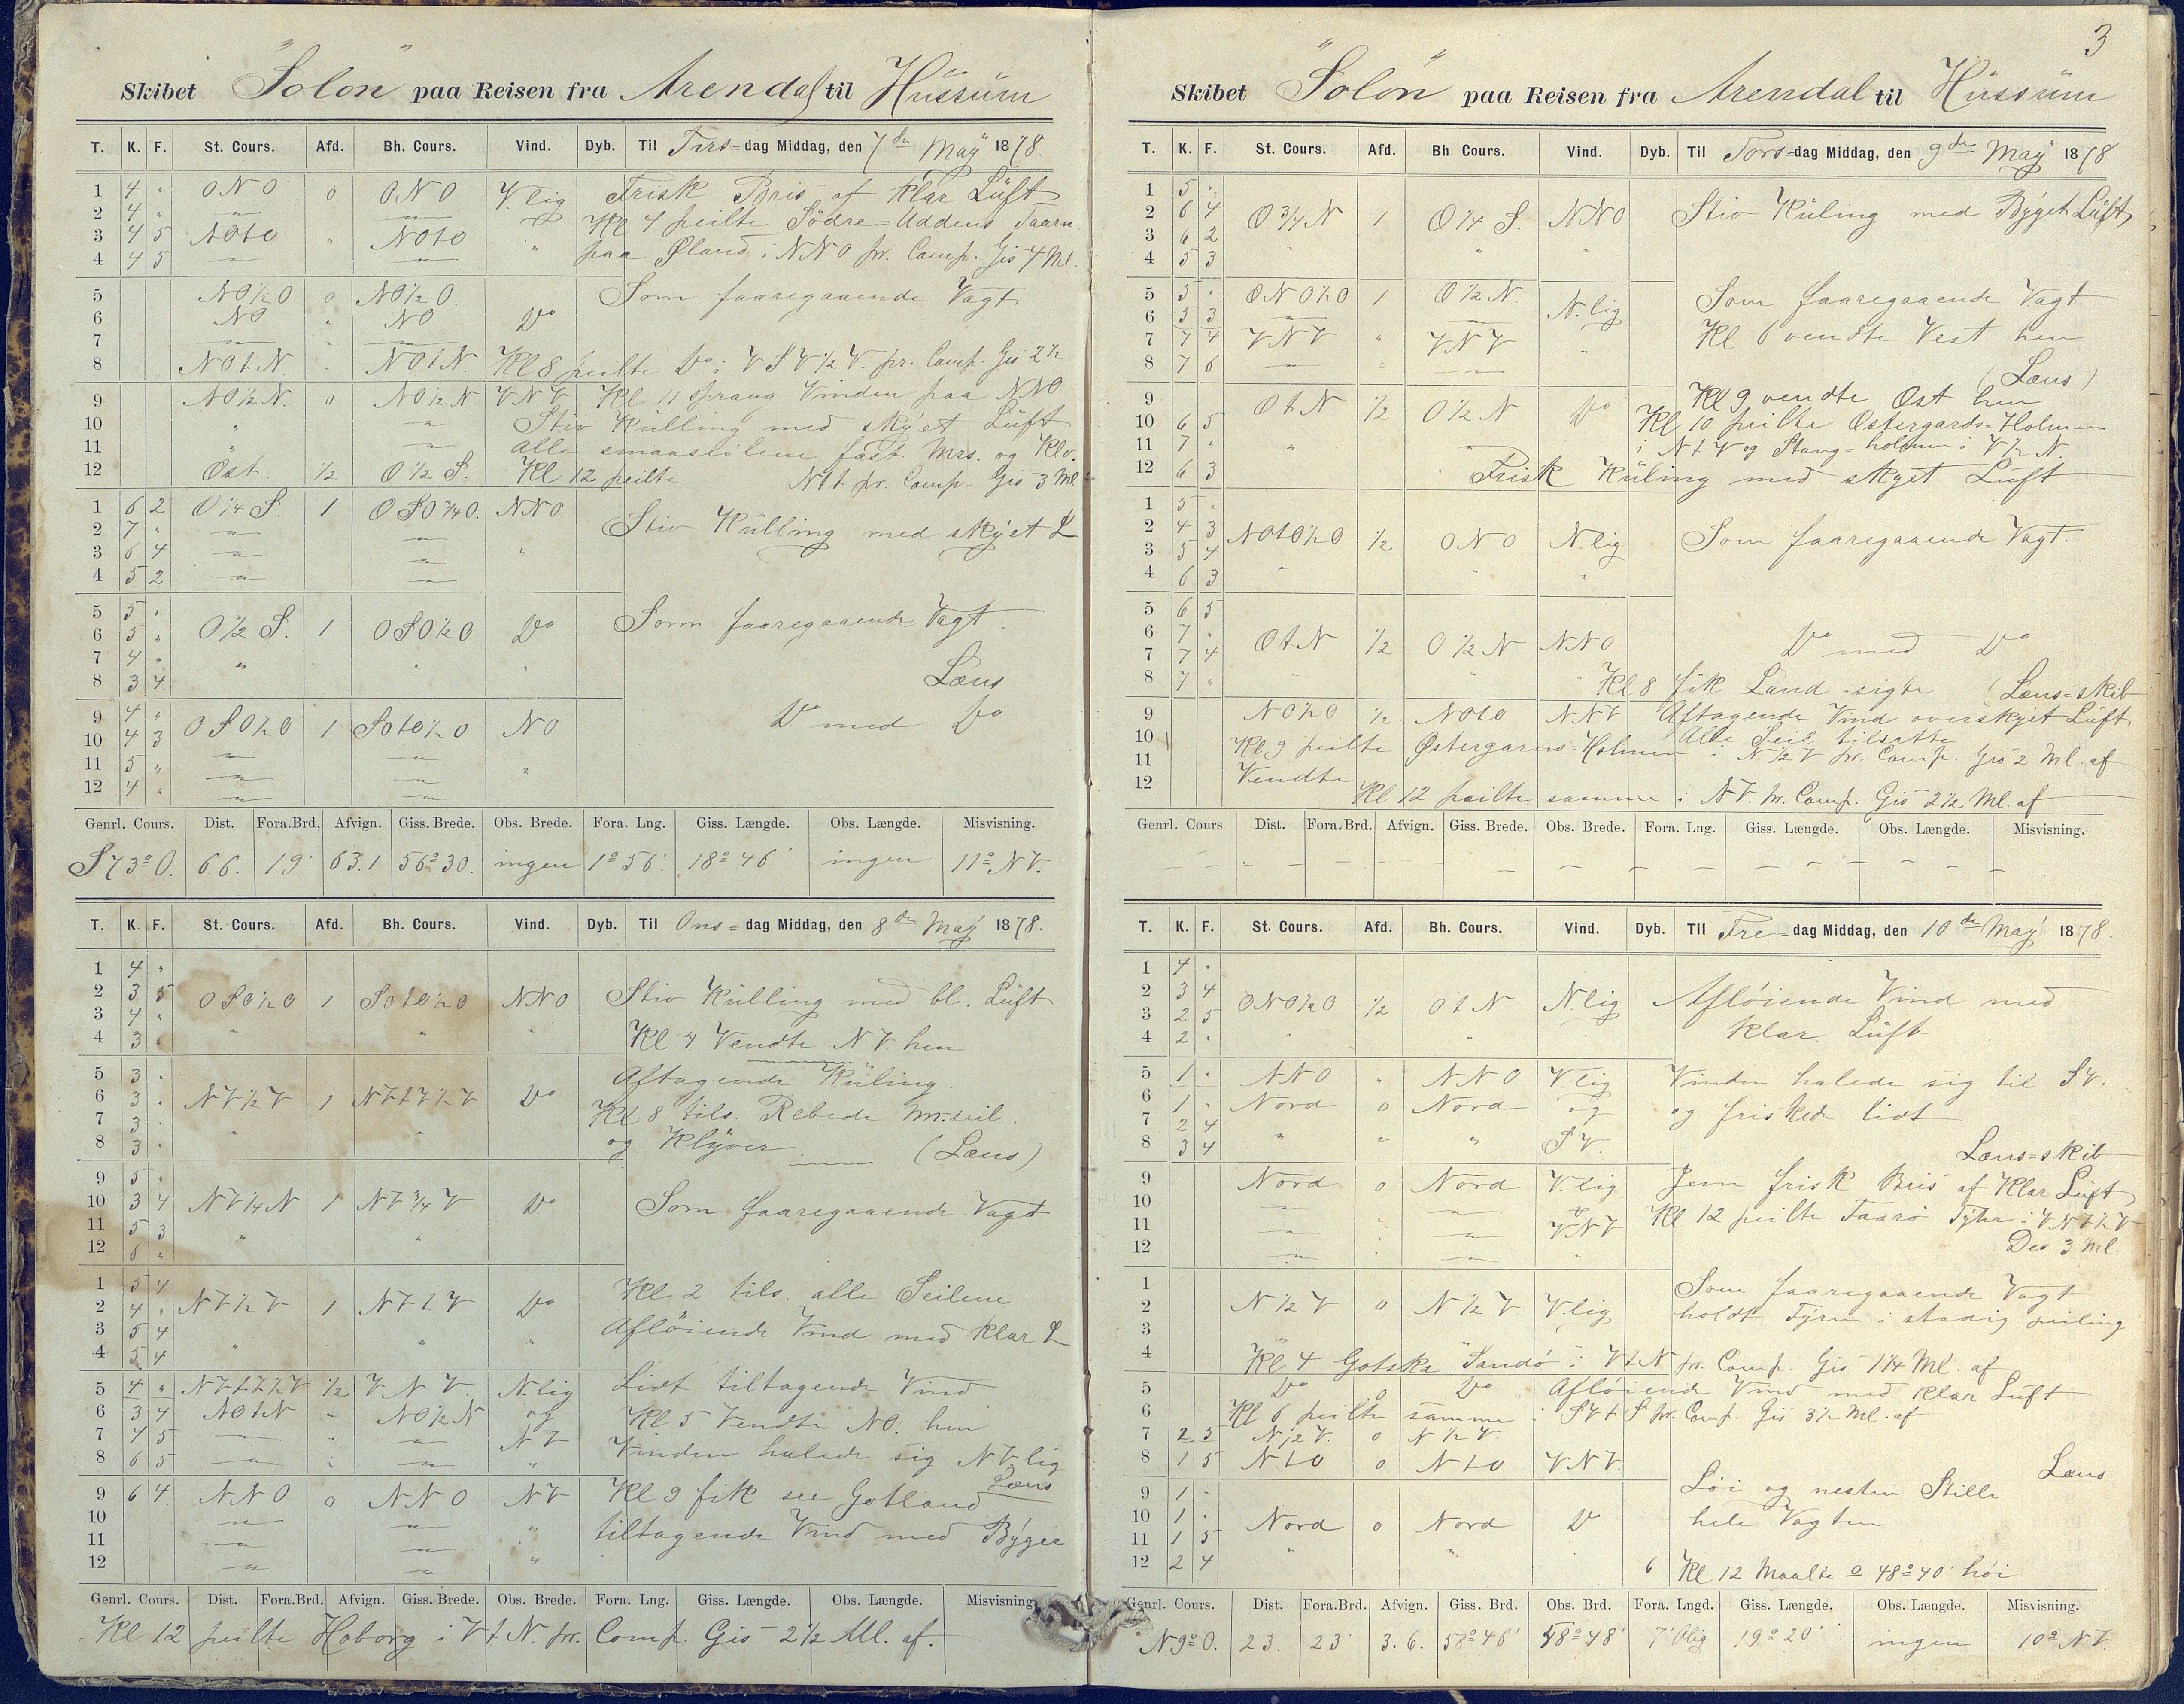 Skibet "Solon" paa Reisen fra Arendal til Hüssüm
T. K. F. St. Cours. Afd. Bh. Cours. Vind. Dyb. Til Tirs=dag Middag, den 7de May 1878.
1 4 " ONO 0 ONO V.lig Frisk Bris af klar Lüft
2 4 " Kl 4 peilte Södre=Uddens Taarn
3 4 5 NOtO " NOtO " paa Øland i NNO pr. Comp. Gis 4 Ml.
4 4 5
5 NO½O 0 NO½O. Som faaregaaende Vagt
6 NO " NO Do
7
8 NOtN " NOtN. Kl 8 peilte Do i VSV½V. pr. Comp. Gis 2½
9 NO½N. 0 NO½N VNV Kl 11 sprang Vinden paa NNO
10 " Stiv Külling med skÿet Lüft
11 alle smaaseilene fast Mrs. og Klv.
12 Öst. ½ O½S. Kl 12 peilte Ntt pr. Comp. Gis 3 Ml
1 6 2 O¼S. 1 OSO¾O. NNO
2 7 " Stiv Külling med skÿet L
3 6 4 "
4 5 2
5 5 "
6 5 " O½S. 1 OSO½O Do Som faaregaaende Vagt.
7 4 " " " "
8 3 4 Læns
9 4 "
10 4 3 OSO½O 1 SOtO½O NO Do med Do
11 5 " "
12 4 "
Genrl. Cours. Dist. Fora.Brd. Afvign. Giss. Brede. Obs. Brede. Fora. Lng. Giss. Længde. Obs. Længde. Misvisning.
S73°O. 66. 19' 63.1 56°30. ingen 1°56' 18°46' ingen 11° NV.
T. K. F. St. Cours. Afd. Bh. Cours. Vind. Dyb. Til Ons=dag Middag, den 8de May 1878.
1 4 "
2 3 5 OSO½O 1 SOtO½O NNO Stiv Külling med bl. Lüft
3 4 " " " "
4 3 " Kl 4 Vendte NV. hen
5 3 " Aftagende Küling.
6 3 " NV½V 1 NVtV½V Do Kl 8 tils. Rebede Mrseil.
7 3 " " "
8 3 " og Klÿver (Læns)
9 5 "
10 3 4 NV¼N 1 NV¾V Do Som faaregaaende Vagt
11 5 3 " "
12 6 "
1 5 4 Kl 2 tils. alle Seilene
2 4 " NV½V 1 NVtV Do
3 5 4 " " " Aflöiende Vind med klar L
4 5 4
5 4 " NVtV½V ½ VNV. N.lig Lidt tiltagende Vind
6 3 4 NOtN " NO½N og Kl 5 Vendte NO. hen
7 4 5 NV Vinden halede sig NVlig
8 6 5 " " Læns
9 6 4 NNO 0 NNO NV Kl 9 fik see Gotland
10 " tiltagende Vind med Bÿger
11 "
12 "
Genrl. Cours. Dist. Fora.Brd. Afvign. Giss. Brede. Obs. Brede. Fora. Lng. Giss. Længde. Obs. Længde. Misvisning.
Kl 12 peilte Hoborg i VtN. pr. Comp. Gis 2½ Ml. af.
3
Skibet "Solon" paa Reisen fra Arendal til Hüssüm
T. K. F. St. Cours. Afd. Bh. Cours. Vind. Dyb. Til Tors=dag Middag, den 9de May 1878
1 5 "
2 6 4 O¾N 1 O¼S. NNO Stiv Küling med Bÿget Lüft
3 6 2 " "
4 5 3
5 5 " ONO½O 1 O½N. N.lig Som faaregaaende Vagt
6 5 3 Kl 6 vendte Vest hen
7 7 4 VNV " VNV "
8 7 6 " (Læns)
9 Kl 9 vendte Ost hen
10 6 5 OtN ½ O½N Do Kl 10 peilte Ostergards=Holmen
11 7 " " i NtV og Stang=holmen i V½N.
12 6 3 Frisk Küling med skyet Luft
1 5 "
2 4 3 NOtO½O ½ ONO N.lig Som faaregaaende Vagt.
3 5 4 " " "
4 6 3
5 6 5
6 7 " Do med Do
7 7 4 OtN ½ O½N NNO
8 7 " Kl 8 fik Land i sigte (Læns=skib
9 NO½O ½ NOtO NNV Aftagende Vind overskyet Lüft
10 Alle Seil tilsatte
11 Kl 9 peilte Østergarns=Holmen i N½V pr. Comp. Gis 2 Ml. af
12 Vendte Kl 12 peilte samme i NV. pr. Comp. Gis 2½ Ml. af
Genrl. Cours Dist. Fora.Brd. Afvign. Giss. Brede. Obs. Brede. Fora. Lng. Giss. Længde. Obs. Længde. Misvisning.
T. K. F. St. Cours. Afd. Bh. Cours. Vind. Dyb. Til Fre=dag Middag, den 10de May 1878.
1 4 "
2 3 4 ONO½O ½ OtN N.lig Aflöiende Vind med
3 2 5 klar Lüft
4 2 "
5 1 " NNO " NNO V.lig Vinden halede sig til SV.
6 1 " Nord 0 Nord og og friskede lidt
7 2 4 " " "
8 3 4 SV. Læns=skib
9 Nord 0 Nord V.lig Jevn frisk Bris af Klar Lüft
10 Kl 12 peilte Faarö Fÿhr i VNV½V
11 VNV
12 Des 3 Ml.
1 Som faaregaaende Vagt
2 N½V 0 N½V. V.lig holdt Fÿren i stadig peiling
3
4 Kl 4 Gotska "Sandö" i VtN pr. Comp. Gis 1¼ Ml. af
5 Do 0 Do Aflöiende Vind med klar Luft
6 Kl 6 peilte samme i SVtS pr. Comp. Gis 3½ Ml. af
7 2 3 N½V. 0 N½V.
8 1 5 NtO 0 NtO VNV. Læns
9 1 " Löi og nesten Stille
10 1 " Nord 0 Nord Do hele Vagten
11 1 5 " "
12 2 4 6 Kl 12 Maalte o 48°40' höi
Genrl. Cours. Dist. Fora.Brd. Afvign. Giss. Brd. Obs. Brd. Fora. Lngd. Giss. Længde. Obs. Længde. Misvisning.
N9°O. 23. 23' 3.6. 58°46' 58°48' 7' Olig 19°20' ingen 10° NV.